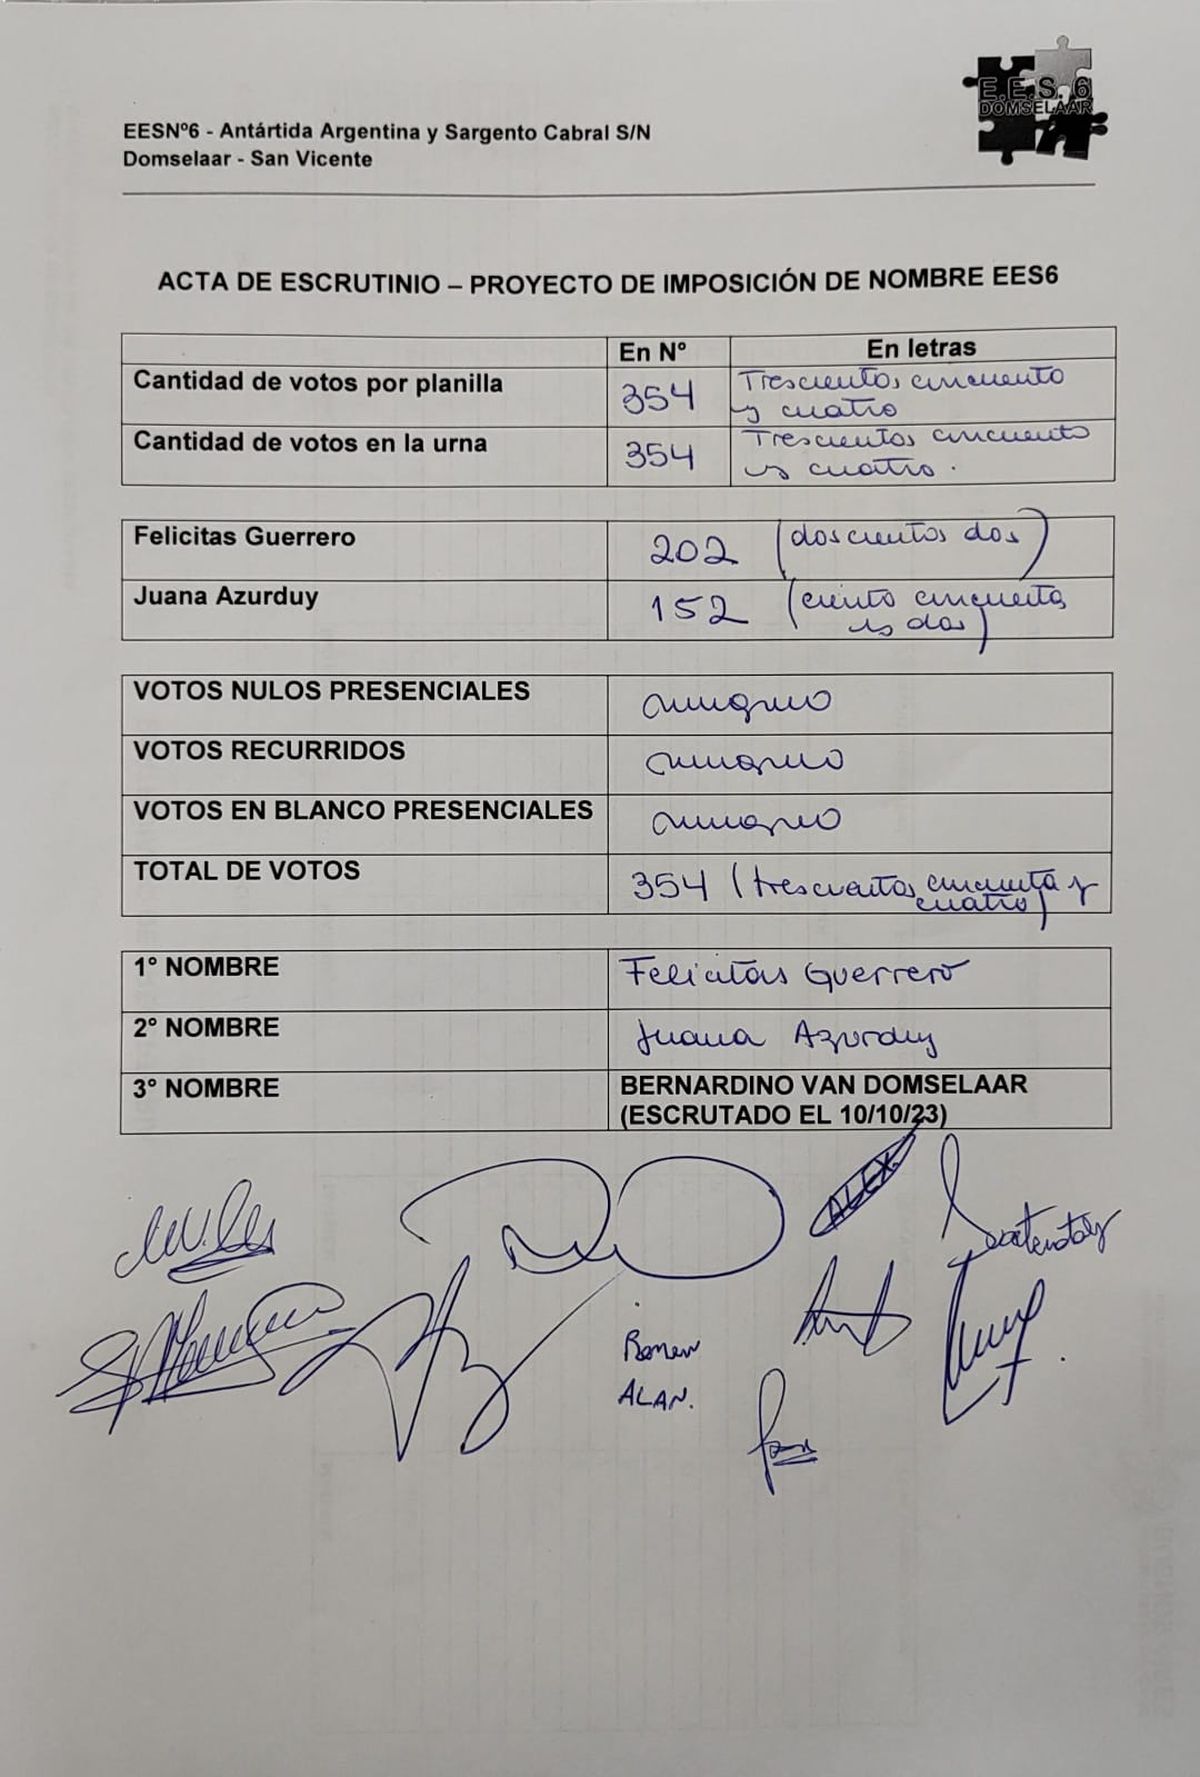 E.E.S. 6
DOMSELAAR
EESNº6 - Antártida Argentina y Sargento Cabral S/N
Domselaar - San Vicente
ACTA DE ESCRUTINIO – PROYECTO DE IMPOSICIÓN DE NOMBRE EES6
En Nº En letras
Cantidad de votos por planilla 354 Trescientos cincuenta
y cuatro
Cantidad de votos en la urna 354 Trescientos cincuenta
y cuatro.
Felicitas Guerrero 202 (doscientos dos)
Juana Azurduy 152 (ciento cincuenta
y dos)
VOTOS NULOS PRESENCIALES ninguno
VOTOS RECURRIDOS ninguno
VOTOS EN BLANCO PRESENCIALES ninguno
TOTAL DE VOTOS 354 (trescientos cincuenta y
cuatro)
1° NOMBRE Felicitas Guerrero
2° NOMBRE Juana Azurduy
3° NOMBRE BERNARDINO VAN DOMSELAAR
(ESCRUTADO EL 10/10/23)
ALEX
ALAN.